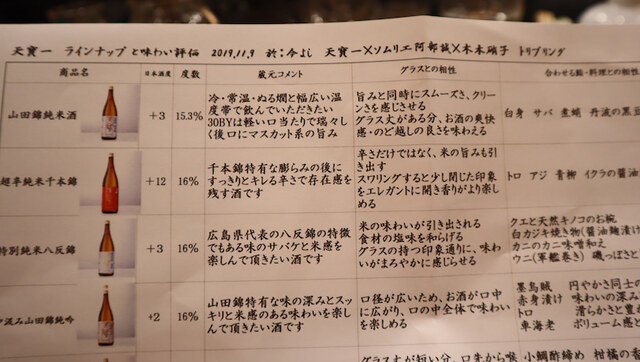 天寳一 ラインナップ と味わい評価 2019.11.9 於:今よし 天寳一×ソムリエ阿部誠×木本硝子 トリプリング
商品名 日本酒度 度数 蔵元コメント グラスとの相性 合わせる鮨・料理との相性
山田錦純米酒 +3 15.3%
冷・常温・ぬる燗と幅広い温
度帯で飲んでいただきたい
30BYは軽い口当たりで瑞々し
く後口にマスカット系の旨み
旨みと同時にスムーズさ、クリー
ンさを感じさせる
グラス丈がある分、お酒の爽快
感・のど越しの良さを味わえる
白身 サバ 煮蛸 丹波の黒豆
超辛純米千本錦 +12 16%
千本錦特有な膨らみの後に
すっきりとキレる辛さで存在感を
残す酒です
辛さだけではなく、米の旨みも引
き出す
スワリングすると少し閉じた印象
をエレガントに開き香りがより楽し
める
トロ アジ 青柳 イクラの醤油
特別純米八反錦 +3 16%
広島県代表の八反錦の特徴
でもある味のサバケと米感を
楽しんで頂きたい酒です
米の味わいが引き出される
食材の塩味を和らげる
グラスの持つ印象通りに、味わ
いがまろやかに感じらせる
クエと天然キノコのお椀
白カジキ焼き物(醤油麹漬け
カニのカニ味噌和え
ウニ(軍艦巻き) 磯っぽさと
中汲み山田錦純吟 +2 16%
山田錦特有な味の深みとスッ
キリと米感のある味わいを楽し
んで頂きたい酒です
口径が広いため、お酒が口中
に広がり、口の中全体で味わい
を楽しめる
墨烏賊 円やかさ同士の
赤身漬け 味わいの深み
トロ 滑らかさと豊か
車海老 ボリューム感と
グラス丈が短い分、口先から喉
小鯛酢締め 柑橘の